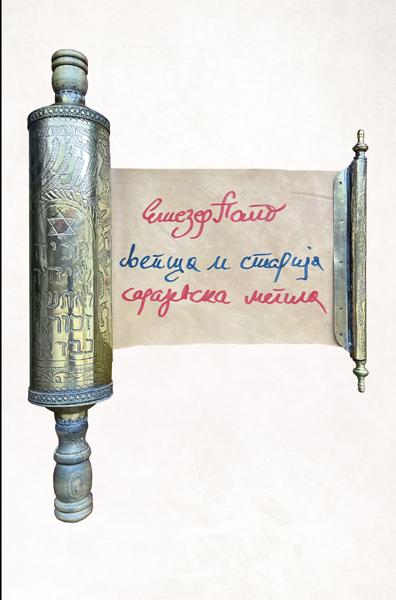 Елиезер Папо
љепша и старија
сарајевска мегила